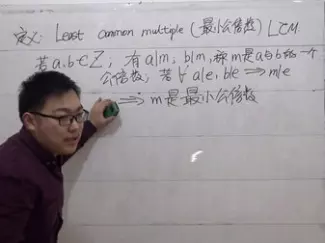 定义: Least common multiple (最小公倍数) LCM.
若 a,b∈Z, 有 a|m, b|m, 称 m是a与b的一个
公倍数; 若 ∀ a|e, b|e ⟹ m|e
⟹ m 是最小公倍数